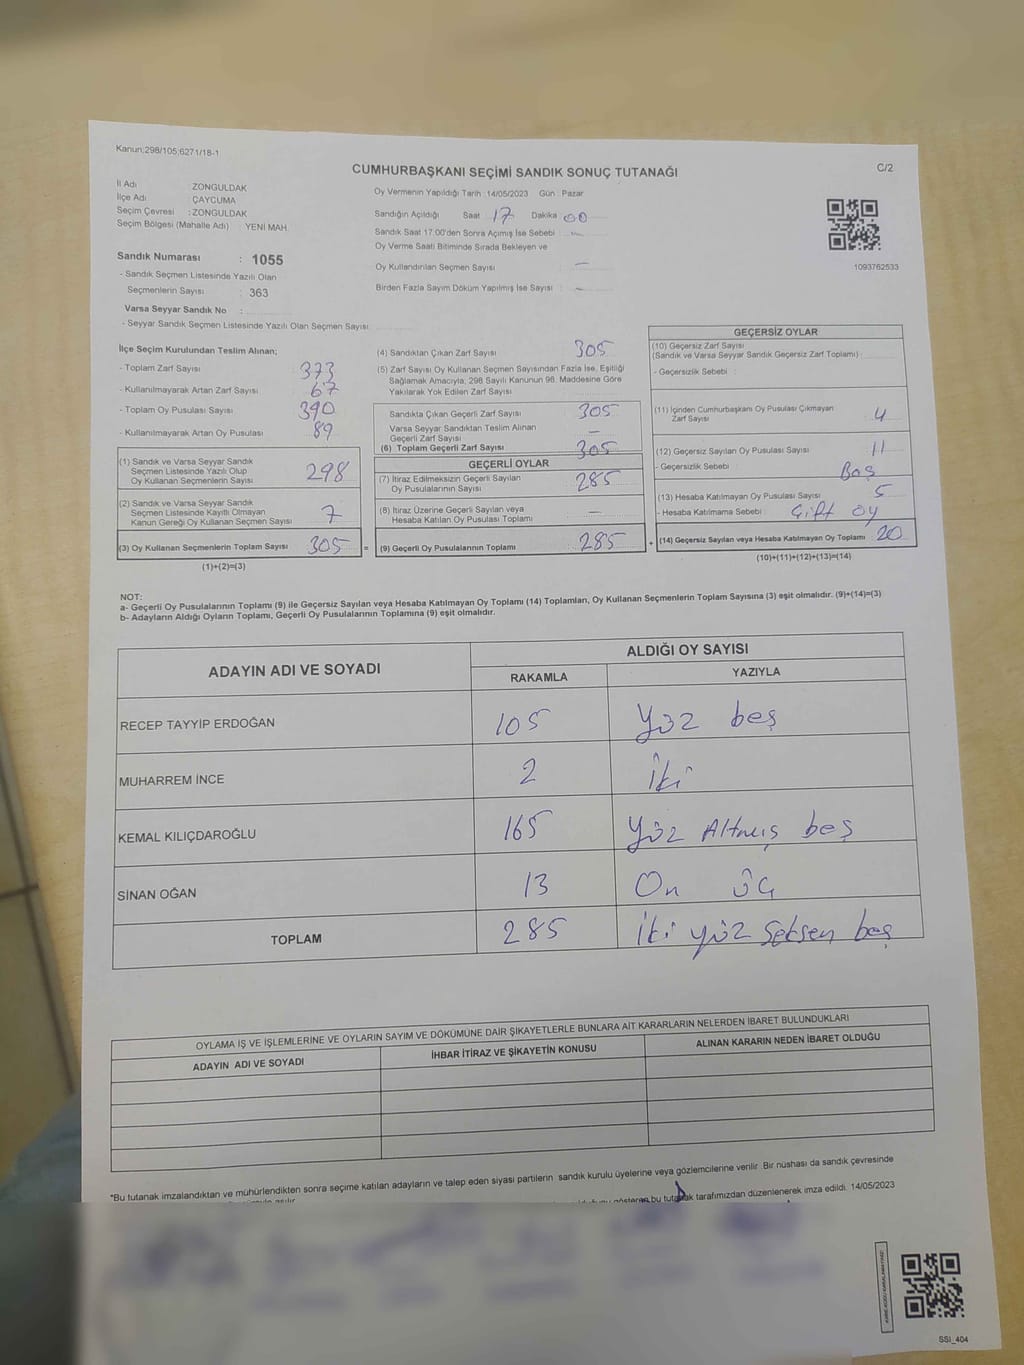 Kanun;298/105;6271/18-1
CUMHURBAŞKANI SEÇİMİ SANDIK SONUÇ TUTANAĞI
C/2
İl Adı : ZONGULDAK
İlçe Adı : ÇAYCUMA
Seçim Çevresi : ZONGULDAK
Seçim Bölgesi (Mahalle Adı) YENİ MAH.
Sandık Numarası : 1055
- Sandık Seçmen Listesinde Yazılı Olan
Seçmenlerin Sayısı : 363
Varsa Seyyar Sandık No :
- Seyyar Sandık Seçmen Listesinde Yazılı Olan Seçmen Sayısı
Oy Vermenin Yapıldığı Tarih :14/05/2023 Gün : Pazar
Sandığın Açıldığı Saat 17 Dakika 00
Sandık Saat 17:00'den Sonra Açımış İse Sebebi : -
Oy Verme Saati Bitiminde Sırada Bekleyen ve
Oy Kullandırılan Seçmen Sayısı : -
Birden Fazla Sayım Döküm Yapılmış İse Sayısı : -
1093762533
İlçe Seçim Kurulundan Teslim Alınan;
- Toplam Zarf Sayısı : 373
- Kullanılmayarak Artan Zarf Sayısı : 67
- Toplam Oy Pusulası Sayısı : 390
- Kullanılmayarak Artan Oy Pusulası : 89
(1) Sandık ve Varsa Seyyar Sandık
Seçmen Listesinde Yazılı Olup
Oy Kullanan Seçmenlerin Sayısı 298
(2) Sandık ve Varsa Seyyar Sandık
Seçmen Listesinde Kayıtlı Olmayan
Kanun Gereği Oy Kullanan Seçmen Sayısı 7
(3) Oy Kullanan Seçmenlerin Toplam Sayısı 305 =
(1)+(2)=(3)
(4) Sandıktan Çıkan Zarf Sayısı 305
(5) Zarf Sayısı Oy Kullanan Seçmen Sayısından Fazla İse, Eşitliği
Sağlamak Amacıyla, 298 Sayılı Kanunun 98. Maddesine Göre
Yakılarak Yok Edilen Zarf Sayısı
Sandıkta Çıkan Geçerli Zarf Sayısı 305
Varsa Seyyar Sandıktan Teslim Alınan
Geçerli Zarf Sayısı -
(6) Toplam Geçerli Zarf Sayısı 305
GEÇERLİ OYLAR
(7) İtiraz Edilmeksizin Geçerli Sayılan
Oy Pusulalarının Sayısı 285
(8) İtiraz Üzerine Geçerli Sayılan veya
Hesaba Katılan Oy Pusulası Toplamı -
(9) Geçerli Oy Pusulalarının Toplamı 285 +
GEÇERSİZ OYLAR
(10) Geçersiz Zarf Sayısı
(Sandık ve Varsa Seyyar Sandık Geçersiz Zarf Toplamı) :
- Geçersizlik Sebebi :
(11) İçinden Cumhurbaşkanı Oy Pusulası Çıkmayan
Zarf Sayısı 4
(12) Geçersiz Sayılan Oy Pusulası Sayısı 11
- Geçersizlik Sebebi : Boş
(13) Hesaba Katılmayan Oy Pusulası Sayısı 5
- Hesaba Katılmama Sebebi : Çift oy
(14) Geçersiz Sayılan veya Hesaba Katılmayan Oy Toplamı 20
(10)+(11)+(12)+(13)=(14)
NOT:
a- Geçerli Oy Pusulalarının Toplamı (9) ile Geçersiz Sayılan veya Hesaba Katılmayan Oy Toplamı (14) Toplamları, Oy Kullanan Seçmenlerin Toplam Sayısına (3) eşit olmalıdır. (9)+(14)=(3)
b- Adayların Aldığı Oyların Toplamı, Geçerli Oy Pusulalarının Toplamına (9) eşit olmalıdır.
ADAYIN ADI VE SOYADI
ALDIĞI OY SAYISI
RAKAMLA YAZIYLA
RECEP TAYYİP ERDOĞAN 105 Yüz beş
MUHARREM İNCE 2 İki
KEMAL KILIÇDAROĞLU 165 Yüz Altmış beş
SİNAN OĞAN 13 On üç
TOPLAM 285 İki yüz Seksen beş
OYLAMA İŞ VE İŞLEMLERİNE VE OYLARIN SAYIM VE DÖKÜMÜNE DAİR ŞİKAYETLERLE BUNLARA AİT KARARLARIN NELERDEN İBARET BULUNDUKLARI
ADAYIN ADI VE SOYADI İHBAR İTİRAZ VE ŞİKAYETİN KONUSU ALINAN KARARIN NEDEN İBARET OLDUĞU
*Bu tutanak imzalandıktan ve mühürlendikten sonra seçime katılan adayların ve talep eden siyasi partilerin sandık kurulu üyelerine veya gözlemcilerine verilir. Bir nüshası da sandık çevresinde
gösteren bu tutanak tarafımızdan düzenlenerek imza edildi. 14/05/2023
SSİ_404